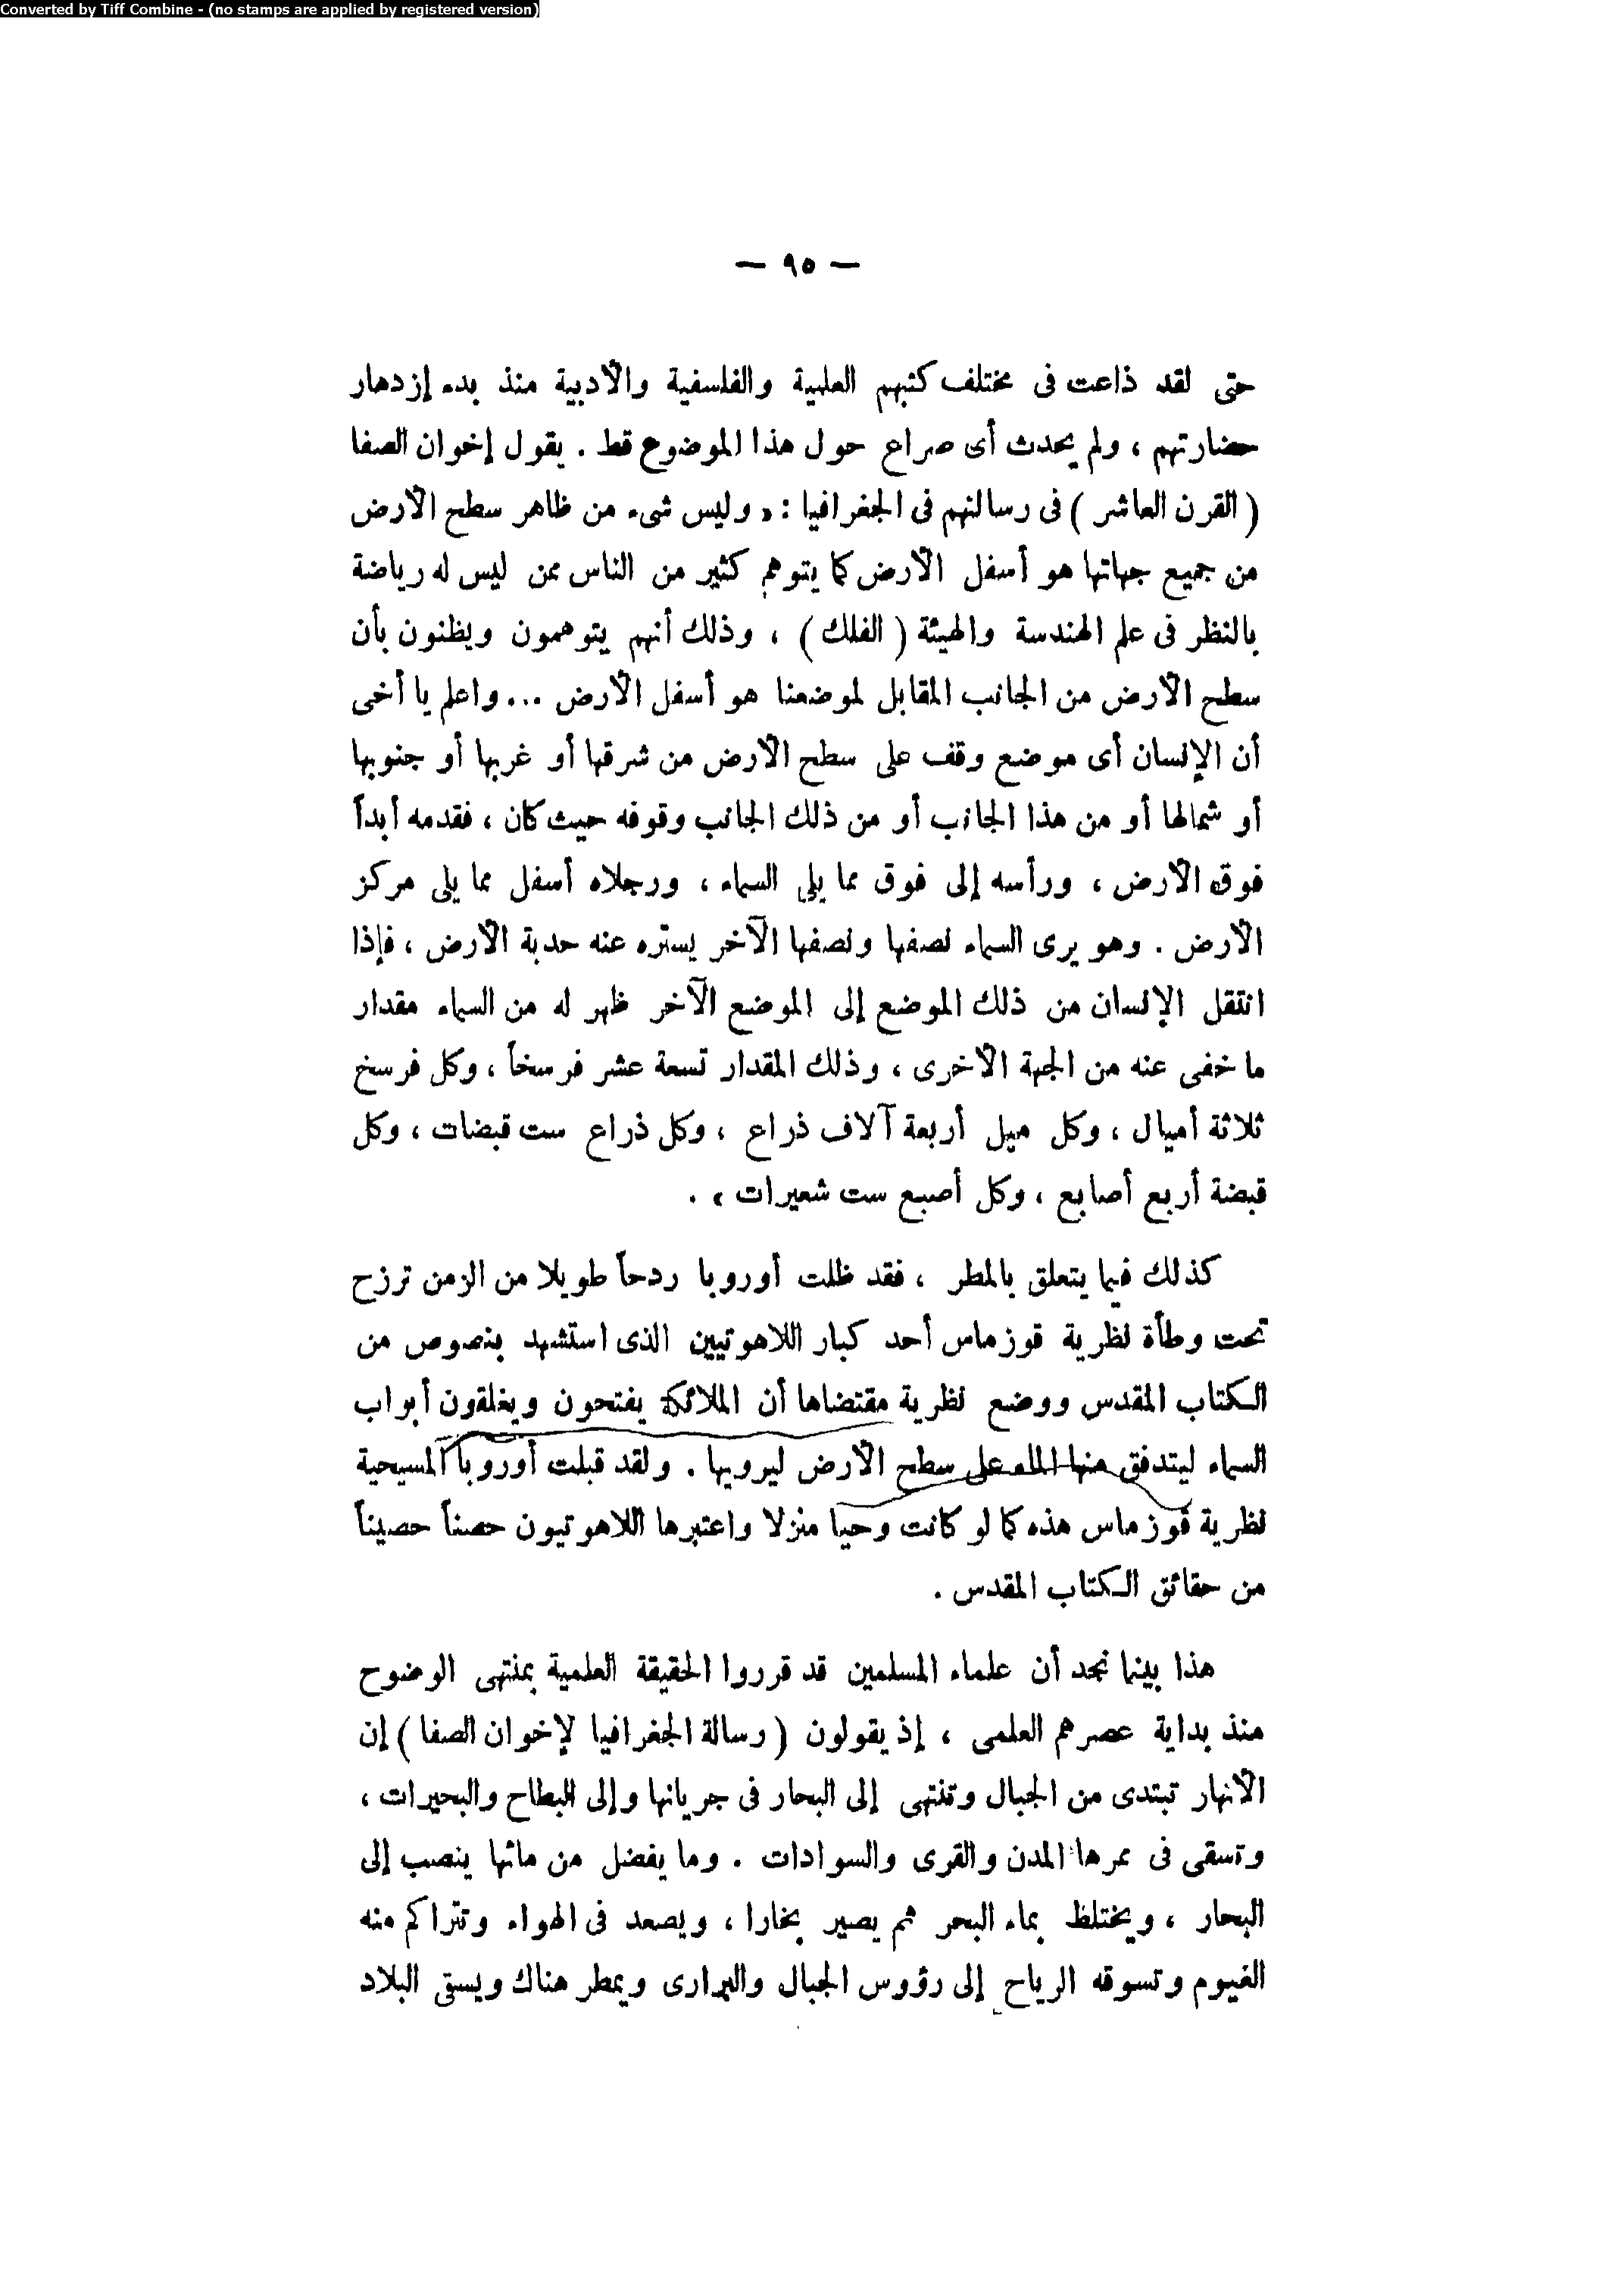 Converted by Tiff Combine - (no stamps are applied by registered version)
— ٩٥ —
حتى لقد ذاعت فى مختلف كتبهم العلمية والفلسفية والأدبية منذ بدء إزدهار
حضارتهم ، ولم يحدث أى صراع حول هذا الموضوع قط . يقول إخوان الصفا
( القرن العاشر ) فى رسالتهم فى الجغرافيا : « وليس شىء من ظاهر سطح الأرض
من جميع جهاتها هو أسفل الأرض كما يتوهم كثير من الناس ممن ليس له رياضة
بالنظر فى علم الهندسة والهيئة ( الفلك ) ، وذلك أنهم يتوهمون ويظنون بأن
سطح الأرض من الجانب المقابل لموضعنا هو أسفل الأرض ... واعلم يا أخى
أن الإنسان أى موضع وقف على سطح الأرض من شرقها أو غربها أو جنوبها
أو شمالها أو من هذا الجانب أو من ذلك الجانب وقوفه حيث كان ، فقدمه أبداً
فوق الأرض ، ورأسه إلى فوق مما يلى السماء ، ورجلاه أسفل مما يلى مركز
الأرض . وهو يرى السماء نصفها ونصفها الآخر يستره عنه حدبة الأرض ، فإذا
انتقل الإنسان من ذلك الموضع إلى الموضع الآخر ظهر له من السماء مقدار
ما خفى عنه من الجهة الأخرى ، وذلك المقدار تسعة عشر فرسخاً ، وكل فرسخ
ثلاثة أميال ، وكل ميل أربعة آلاف ذراع ، وكل ذراع ست قبضات ، وكل
قبضة أربع أصابع ، وكل أصبع ست شعيرات » .
كذلك فيما يتعلق بالمطر ، فقد ظلت أوروبا ردحاً طويلا من الزمن ترزح
تحت وطأة نظرية قوزماس أحد كبار اللاهوتيين الذى استشهد بنصوص من
الكتاب المقدس ووضع نظرية مقتضاها أن الملائكة يفتحون ويغلقون أبواب
السماء ليتدفق منها الماء على سطح الأرض ليرويها . ولقد قبلت أوروبا المسيحية
نظرية قوزماس هذه كما لو كانت وحيا منزلا واعتبرها اللاهوتيون حصناً حصيناً
من حقائق الكتاب المقدس .
هذا بينما نجد أن علماء المسلمين قد قرروا الحقيقة العلمية بمنتهى الوضوح
منذ بداية عصرهم العلمى ، إذ يقولون ( رسالة الجغرافيا لإخوان الصفا ) إن
الأنهار تبتدى من الجبال وتنتهى إلى البحار فى جريانها وإلى البطاح والبحيرات ،
وتسقى فى ممرها المدن والقرى والسوادات . وما يفضل من مائها ينصب إلى
البحار ، ويختلط بماء البحر ثم يصير بخارا ، ويصعد فى الهواء وتتراكم منه
الغيوم وتسوقه الرياح إلى رؤوس الجبال والبرارى ويمطر هناك ويسقى البلاد